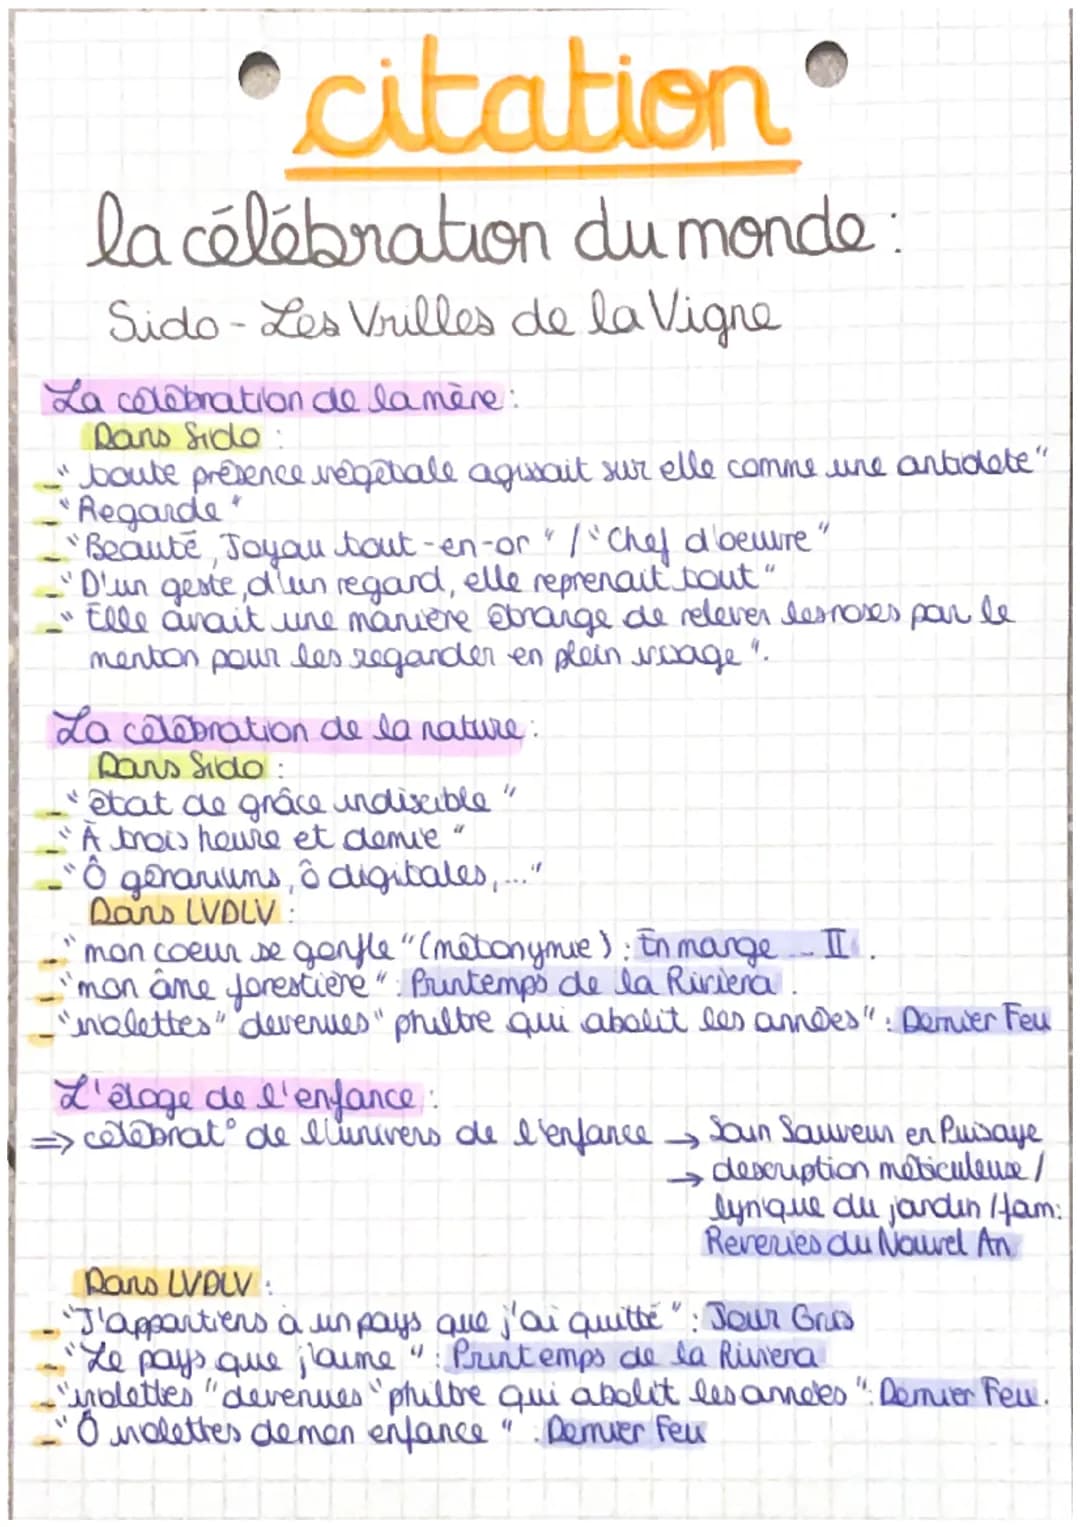 citation
la célébration du monde :
Sido - Les Vrilles de la Vigne
La célébration de la mère :
Dans Sido :
- "toute présence végétale agissait sur elle comme une antidote"
- "Regarde"
- "Beauté, Joyau tout-en-or" / "Chef d'oeuvre"
- "D'un geste, d'un regard, elle reprenait tout"
- "Elle avait une manière étrange de relever les roses par le
menton pour les regarder en plein visage".
La célébration de la nature :
Dans Sido :
- "état de grâce indiscible"
- "À trois heure et demie"
- "Ô géraniums, ô digitales,..."
Dans LVDLV :
- "mon coeur se gonfle" (métonymie) : En marge... II.
- "mon âme forestière" : Printemps de la Riviera.
- "violettes" devenues "philtre qui abolit les années" : Dernier Feu
L'éloge de l'enfance :
⇒ célébrat° de l'univers de l'enfance → Sain Sauveur en Puisaye
→ description méticuleuse /
lyrique du jardin / fam :
Reveries du Nouvel An
Dans LVDLV :
- "J'appartiens à un pays que j'ai quitté" : Jour Gris
- "Le pays que j'aime" : Printemps de la Riviera
- "violettes" devenues "philtre qui abolit les années" : Dernier Feu.
- "Ô violettes de mon enfance" : Dernier Feu